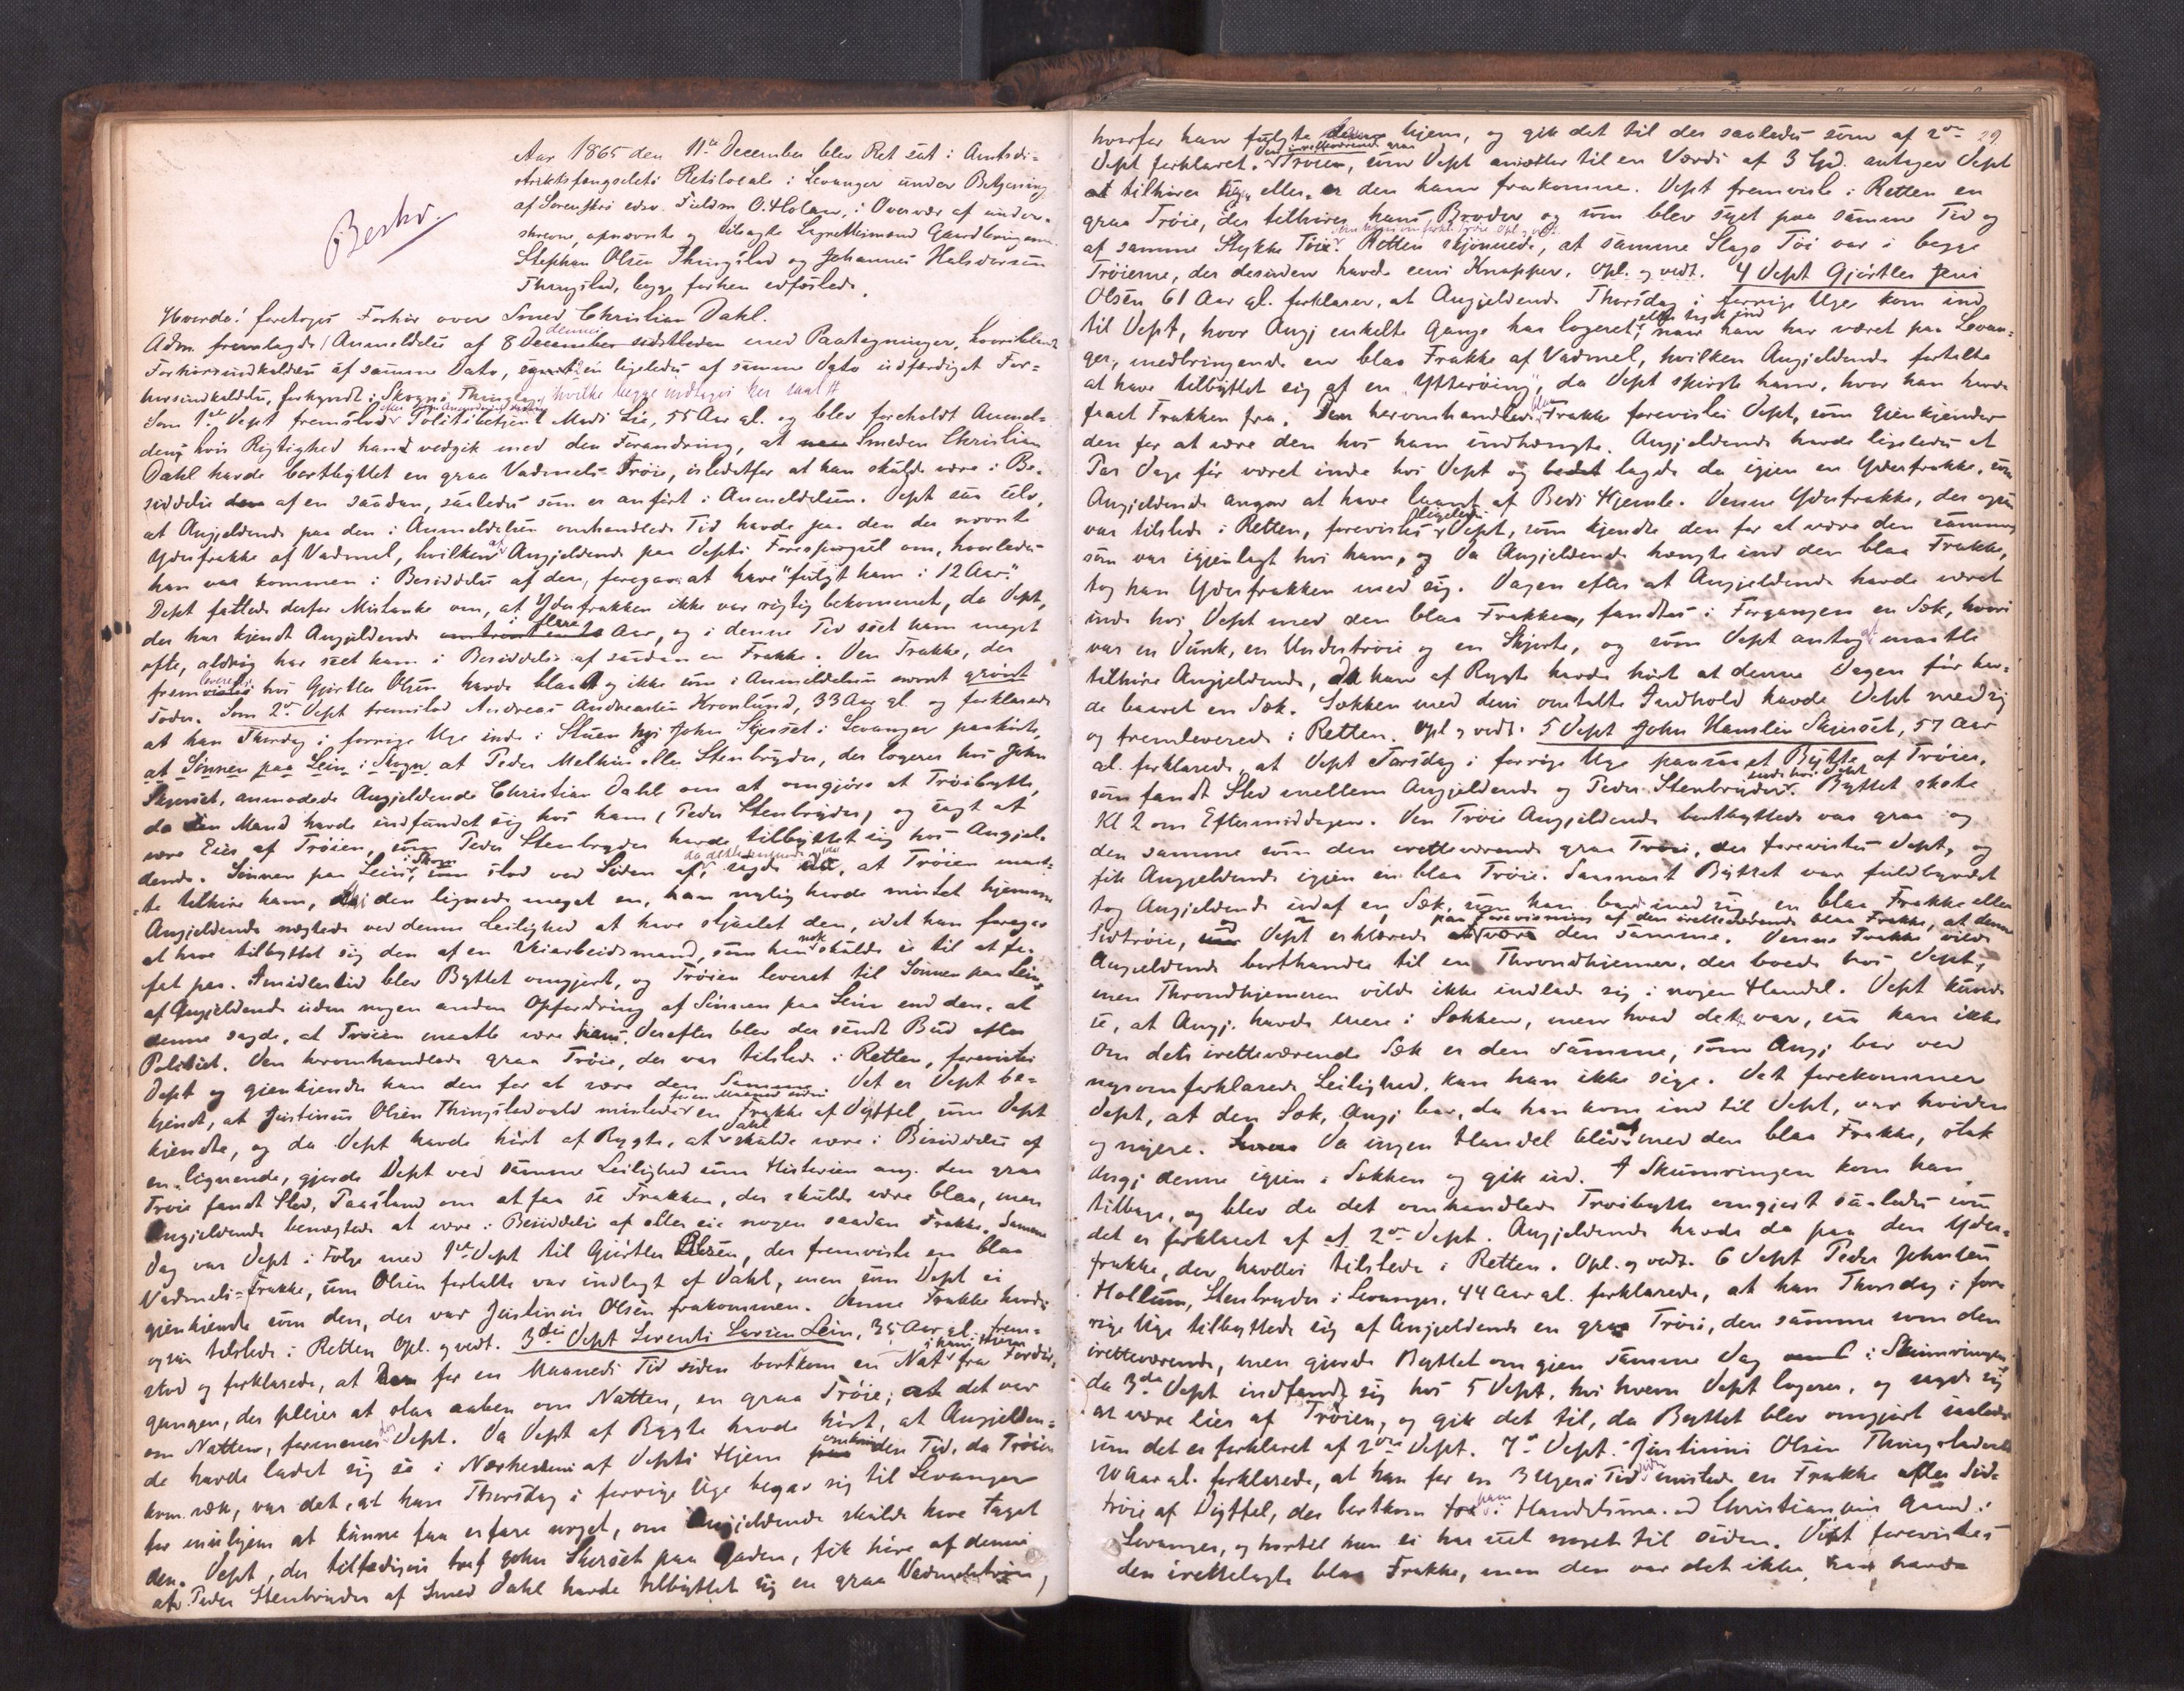 Aar 1865 den 11te December blev Ret sat i Amtsdi-
striktsfængselets Retslocale i Levanger under Betjening
af Sorenskri edsv. Fuldm O. Holaw, i Overvær af under-
skrevne, opnævnte og tilsagte Lagrettesmænd Gaardbrugerne
Stephan Olsen Thingstad og Johannes Halvdorsen
Thingstad, begge forhen edfæstede.
Beskr.
Hvorda! foretoges Forhør over Smed Christian Dahl.
Adm. fremlagde Anmeldelse af 8 dennes med Paategninger, hvoriblandt
Forhørsindkaldelse af samme Dato, en ligeledes af samme Dato udfærdiget For-
hørsindkaldelse, forkyndt i Skogns Thinglag, hvilke begge indtages her saal #
Som 1ste Dept fremstod Politibetjent Mads Lie, 55 Aar gl. og blev foreholdt Anmel-
delsen hvis Rigtighed han vedgik med den Forandring, at Smeden Christian
Dahl havde bortbyttet en graa Vadmels Trøie, istedetfor at han skulde være i Be-
siddelse af en saadan, saaledes som er anført i Anmeldelsen. Dept saa selv,
at Angjeldende paa den i Anmeldelsen omhandlede Tid havde paa den der nævnte
Yderfrakke af Vadmel, hvilken Angjeldende paa Depts Forespørgsel om, hvorledes
han var kommen i Besiddelse af den, foregav at have "fulgt ham i 12 Aar".
Dept fattede derfor Mistanke om, at Yderfrakken ikke var rigtig bekommet, da Dept,
der har kjendt Angjeldende i flere Aar, og i denne Tid seet ham meget
ofte, aldrig har seet ham i Besiddelse af saadan en Frakke. Den Frakke, der
fremleveredes hos Gjørtler Olsen havde blaat og ikke som i Anmeldelsen nævnt grønt
Foder. Som 2de Dept fremstod Andreas Andreasen Kronlund, 33 Aar gl. og forklarede
at han Thorsdag i forrige Uge inde i Stuen hos John Skjerset i Levanger paahørte,
at Sønnen paa Lein i Skogn at Peder Melhus eller Stenbryder, der logerer hos John
Skjerset, anmodede Angjeldende Christian Dahl om at omgjøre et Trøiebytte,
da en Mand havde indfundet sig hos ham (Peder Stenbryder) og sagt at
være Eier af Trøien, som Peder Stenbryder havde tilbyttet sig hos Angjel-
dende. Sønnen paa Lein i Skogn, som stod ved Siden af, da dette foregik, sagde, at Trøien maat-
te tilhøre ham, thi den lignede meget en, han nylig havde mistet hjemme
Angjeldende nægtede ved denne Leilighed at have stjaalet den, idet han foregav
at have tilbyttet sig den af en Veiarbeidsmand, som han nok skulde se til at fa
fat paa. Imidlertid blev Byttet omgjort, og Trøien leveret til Sønnen paa Lein
af Angjeldende uden nogen anden Opfordring af Sønnen paa Lein end den, at
denne sagde, at Trøien maatte være hans. Derefter blev der sendt Bud efter
Politiet. Den heromhandlede graa Trøie, der var tilstede i Retten, forevistes
Dept og gjenkjendte han den for at være den Samme. Det er Dept be-
kjendt, at Justinus Olsen Thingstadvald mistede for en Maaned siden en Frakke af Dyffel, som Dept
kjendte, og da Dept havde hørt af Rygte, at Dahl skulde være i Besiddelse af
en lignende, gjorde Dept ved samme Leilighed som Historien ang. den graa
Trøie fandt Sted, Paastand om at faa se Frakken, der skulde være blaa, men
Angjeldende benægtede at være i Besiddelse af eller eie nogen saadan Frakke. Samme
Dag var Dept i Følge med 1ste Dept til Gjørtler Olsen, der fremviste en blaa
Vadmels-Frakke, som Olsen fortalte var indlagt af Dahl, men som Dept ei
gjenkjendte som den, der var Justinus Olsen frakommen. Denne Frakke havdes
ogsaa tilstede i Retten Opl. og vedt. 3die Dept Lorents Larsen Lein, 35 Aar gl. frem-
stod og forklarede, at der for en Maaneds Tid siden bortkom en Nat fra Fordør-
gangen, i hans Hjem, der pleier at staa aaben om Natten, en graa Trøie; at det var
om Natten, formener Dept. Da Dept af Rygte havde hørt, at Angjelden-
de havde ladet sig se i Nærheden af Depts Hjem omkring den Tid, da Trøien
kom væk, var det, at han Thorsdag i forrige Uge begav sig til Levanger
for muligens at kunne faa erfare noget, om Angjeldende skulde have taget
den. Dept, der tilfældigvis traf John Skjerset paa Gaden, fik høre af denne
at Peder Stenbryder af Smed Dahl havde tilbyttet sig en graa Vadmelstrøie,
29
hvorfor han fulgte hjem, og gik det til der saaledes som af 2den
Dept forklaret. Den iretteværende graa Trøien, som Dept ansætter til en Værdi af 3 Spd. antager Dept
at tilhøre sig, eller er den ham frakommen. Dept fremviste i Retten en
graa Trøie, der tilhører hans Broder og som blev syet paa samme Tid og
af samme Stykke Tøi. Retten skjønnede, at samme Slags Tøi var i begge
Trøierne, der desuden havde eens Knapper. Opl. og vedt. 4 Dept Gjørtler Jens
Olsen 61 Aar gl. forklarer, at Angjeldende Thorsdag i forrige Uge kom ind
til Dept, hvor Angj enkelte Gange har logeret eller lagt ind naar han har været paa Levan-
ger, medbringende en blaa Frakke af Vadmel, hvilken Angjeldende fortalte
at have tilbyttet sig af en "Ytterøing", da Dept spurgte ham, hvor han havde
faaet Frakken fra. Den heromhandlede blaa Frakke forevistes Dept, som gjenkjender
den for at være den hos ham indhængte. Angjeldende havde ligeledes et
Par Dage før været inde hos Dept og lagde da igjen en Yderfrakke, som
Angjeldende angav at have laant af Beds Hjemle. Denne Yderfrakke, der ogsaa
var tilstede i Retten, forevistes ligeledes Dept, som kjendte den for at være den samme
som var igjenlagt hos ham, og da Angjeldende hængte ind den blaa Frakke,
tog han Yderfrakken med sig. Dagen efter at Angjeldende havde været
inde hos Dept med den blaa Frakken, fandtes i Forgangen en Sæk, hvori
var en Dunk, en Undertrøie og en Skjorte, og som Dept antog at maatte
tilhøre Angjeldende, da han af Rygte havde hørt at denne Dagen før hav-
de baaret en Sæk. Sækken med dens omtalte Indhold havde Dept med sig
og fremleverede i Retten. Opl og vedt. 5 Dept John Hansen Skjerset, 57 Aar
gl. forklarede, at Dept Torsdag i forrige Uge paasaa et Bytte af Trøier,
som fandt Sted mellem Angjeldende og Peder Stenbryder inde hos Dept. Byttet skete
Kl 2 om Eftermiddagen. Den Trøie Angjeldende bortbyttede var graa og
den samme som den iretteværende graa Trøie, der forevistes Dept, og
fik Angjeldende igjen en blaa Trøie. Saasnart Byttet var fuldbyrdet
tog Angjeldende udaf en Sæk, som han bar med sig en blaa Frakke eller
Sidtrøie, Dept erklærede paa Forevisning af den iretteværende blaa Frakke, at denne være den samme. Denne Frakke vilde
Angjeldende borthandle til en Throndhjemer, der boede hos Dept,
men Throndhjemeren vilde ikke indlade sig i nogen Handel. Dept kunde
se, at Angj. havde mere i Sækken, men hvad det var, saa han ikke
Om det iretteværende Sæk er den samme, som Angj bar ved
nysomforklarede Leilighed, kan han ikke sige. Det forekommer
Dept, at den Sæk, Angj bar, da han kom ind til Dept, var hvidere
og nyere. Da ingen Handel blev af med den blaa Frakke, stak
Angj denne igjen i Sækken og gik ud. I Skumringen kom han
tilbage, og blev da det omhandlede Trøiebytte omgjort saaledes som
det er forklaret af 2den Dept. Angjeldende havde da paa den Yder-
frakke, der havdes tilstede i Retten. Opl. og vedt. 6 Dept Peder Johnsen
Hallum, Stenbryder i Levanger, 44 Aar gl. forklarede, at han Thorsdag i for-
rige Uge tilbyttede sig af Angjeldende en graa Trøie, den samme som den
iretteværende, men gjorde Byttet om igjen samme Dag i Skumringen,
da 3die Dept indfandt sig hos 5 Dept, hos hvem Dept logerer, og sagde sig
at være Eier af Trøien, og gik det til, da Byttet blev omgjort saaledes
som det er forklaret af 2den Dept. 7de Dept. Justinus Olsen Thingstadvald
20 Aar gl. forklarede, at han for en 3 Ugers Tid siden mistede en Frakke eller Sid-
trøie af Dyffel, der bortkom for ham i Handelsmand Christiansens Gaard i
Levanger, og hvortil han ei har seet noget til siden. Dept forevistes
den irettelagte blaa Frakke, men den var det ikke, han havde